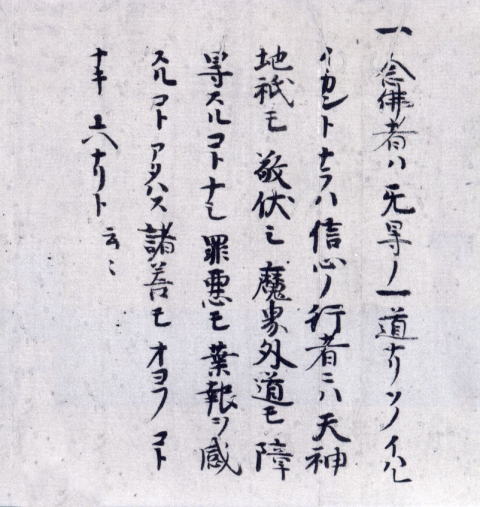 一 念佛者ハ无㝵ノ一道ナリソノイハレ
イカントナラハ信心ノ行者ニハ天神
地祇モ敬伏シ魔界外道モ障
㝵スルコトナシ罪悪モ業報ヲ感
スルコトアタハス諸善モオヨフコト
ナキユヘナリト云々